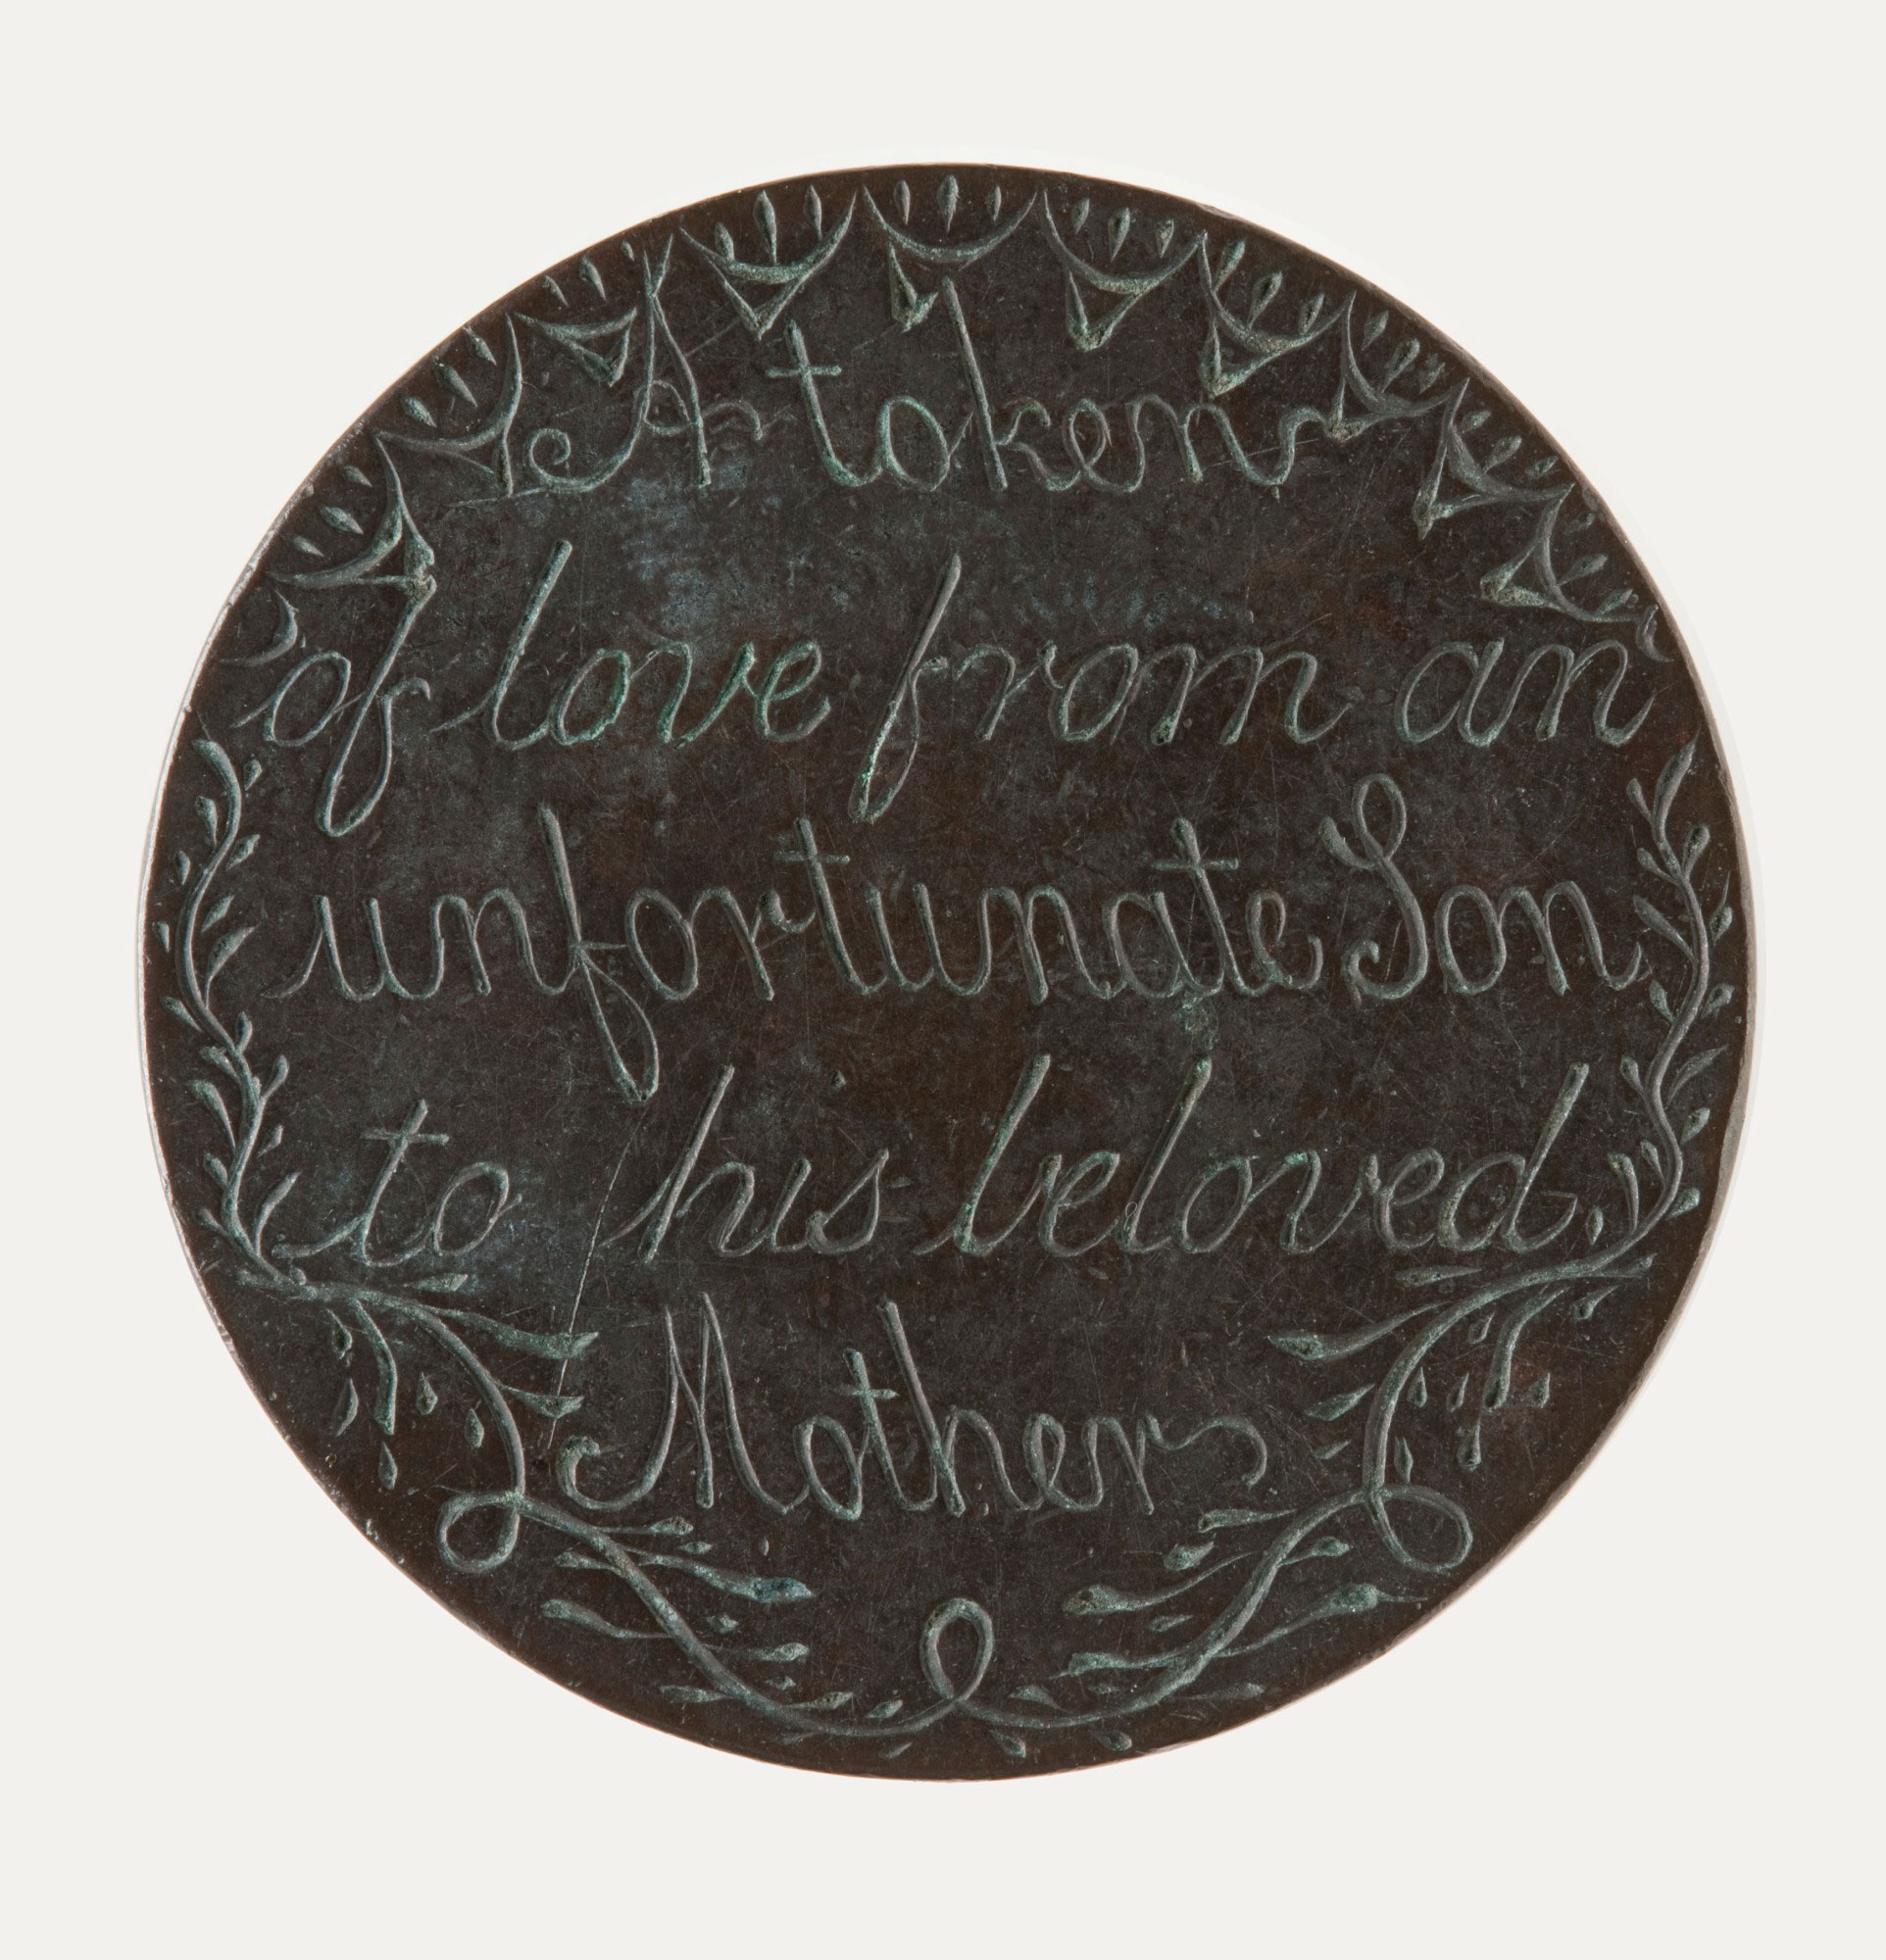 A token
of love from an
unfortunate Son
to his beloved
Mother